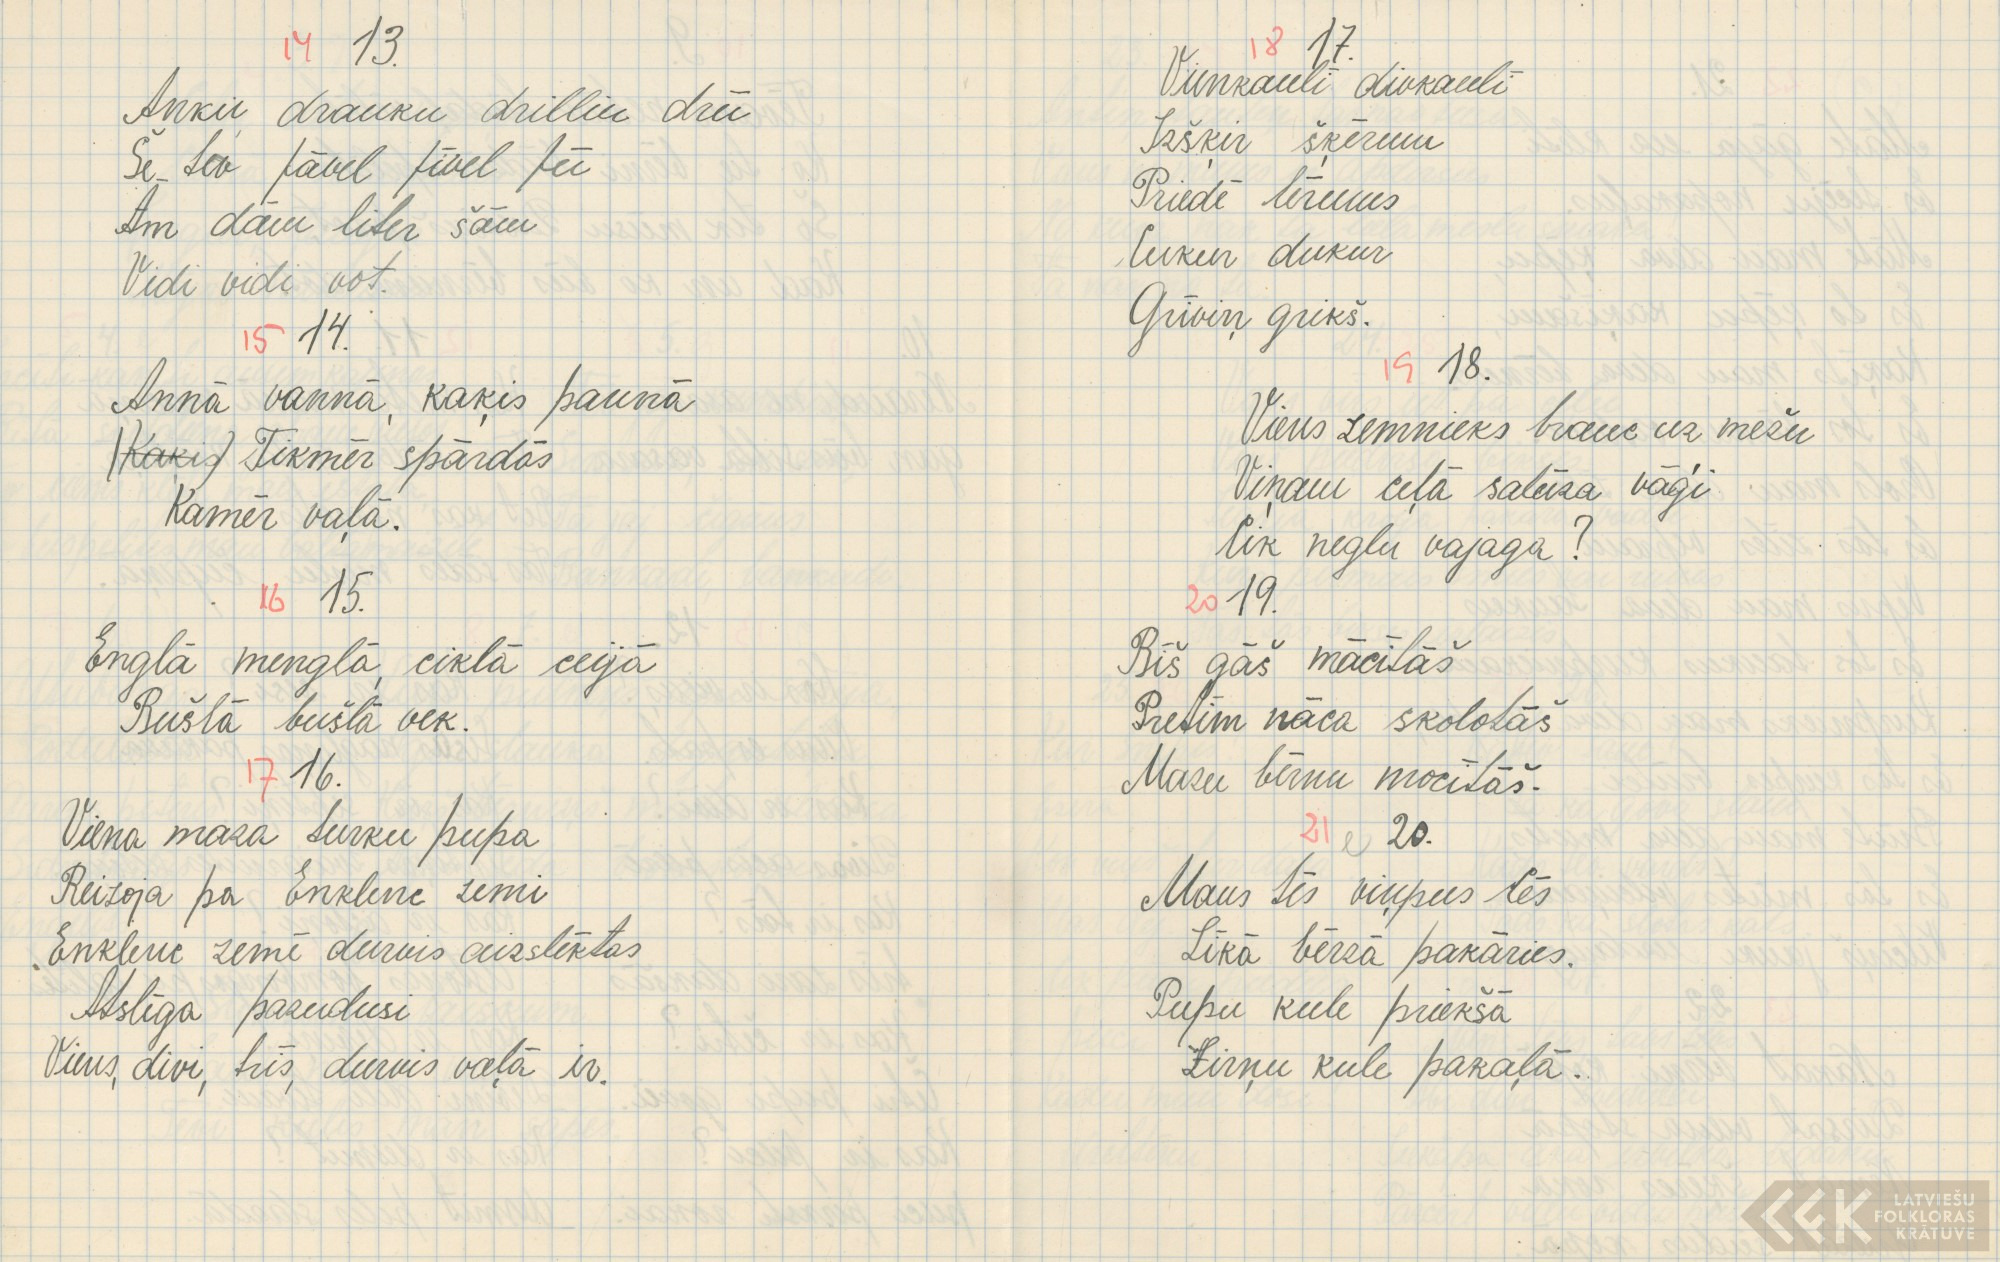 14 13.
Ankii, drauku drilliu drii
Še-tev fāvel fīvel fii
Am dām liter šām
Vidi vidi vot.
15 14.
Annā vannā, kaķis paunā
(Kaķis) Tikmēr spārdās
Kamēr vaļā.
16 15.
Englā menglā, ciklā ceijā
Buštā buštā vek.
17 16.
Viena maza turku pupa
Reizoja pa Enklenc zemi
Enklenc zemē durvis aizslēktas
Atslēga pazudusi
Viens, divi, trīs, durvis vaļā ir.
18 17.
Vienkaulī divkaulī
Izšķir šķērmu
Priedē lērums
Cukur dukur
Grīviņ grikš.
19 18.
Viens zemnieks brauc uz mežu
Viņam ceļā salūza vāģi
Cik neglu vajaga?
20 19.
Bīš gāš mācītāš
Pretim nāca skolotāš
Mazu bērnu mocītāš.
21 20.
Maus tēs viņpus tēs
Līkā bērzā pakāries.
Pupu kule priekšā
Zirņu kule pakaļā.
LATVIEŠU
FOLKLORAS
KRĀTUVE